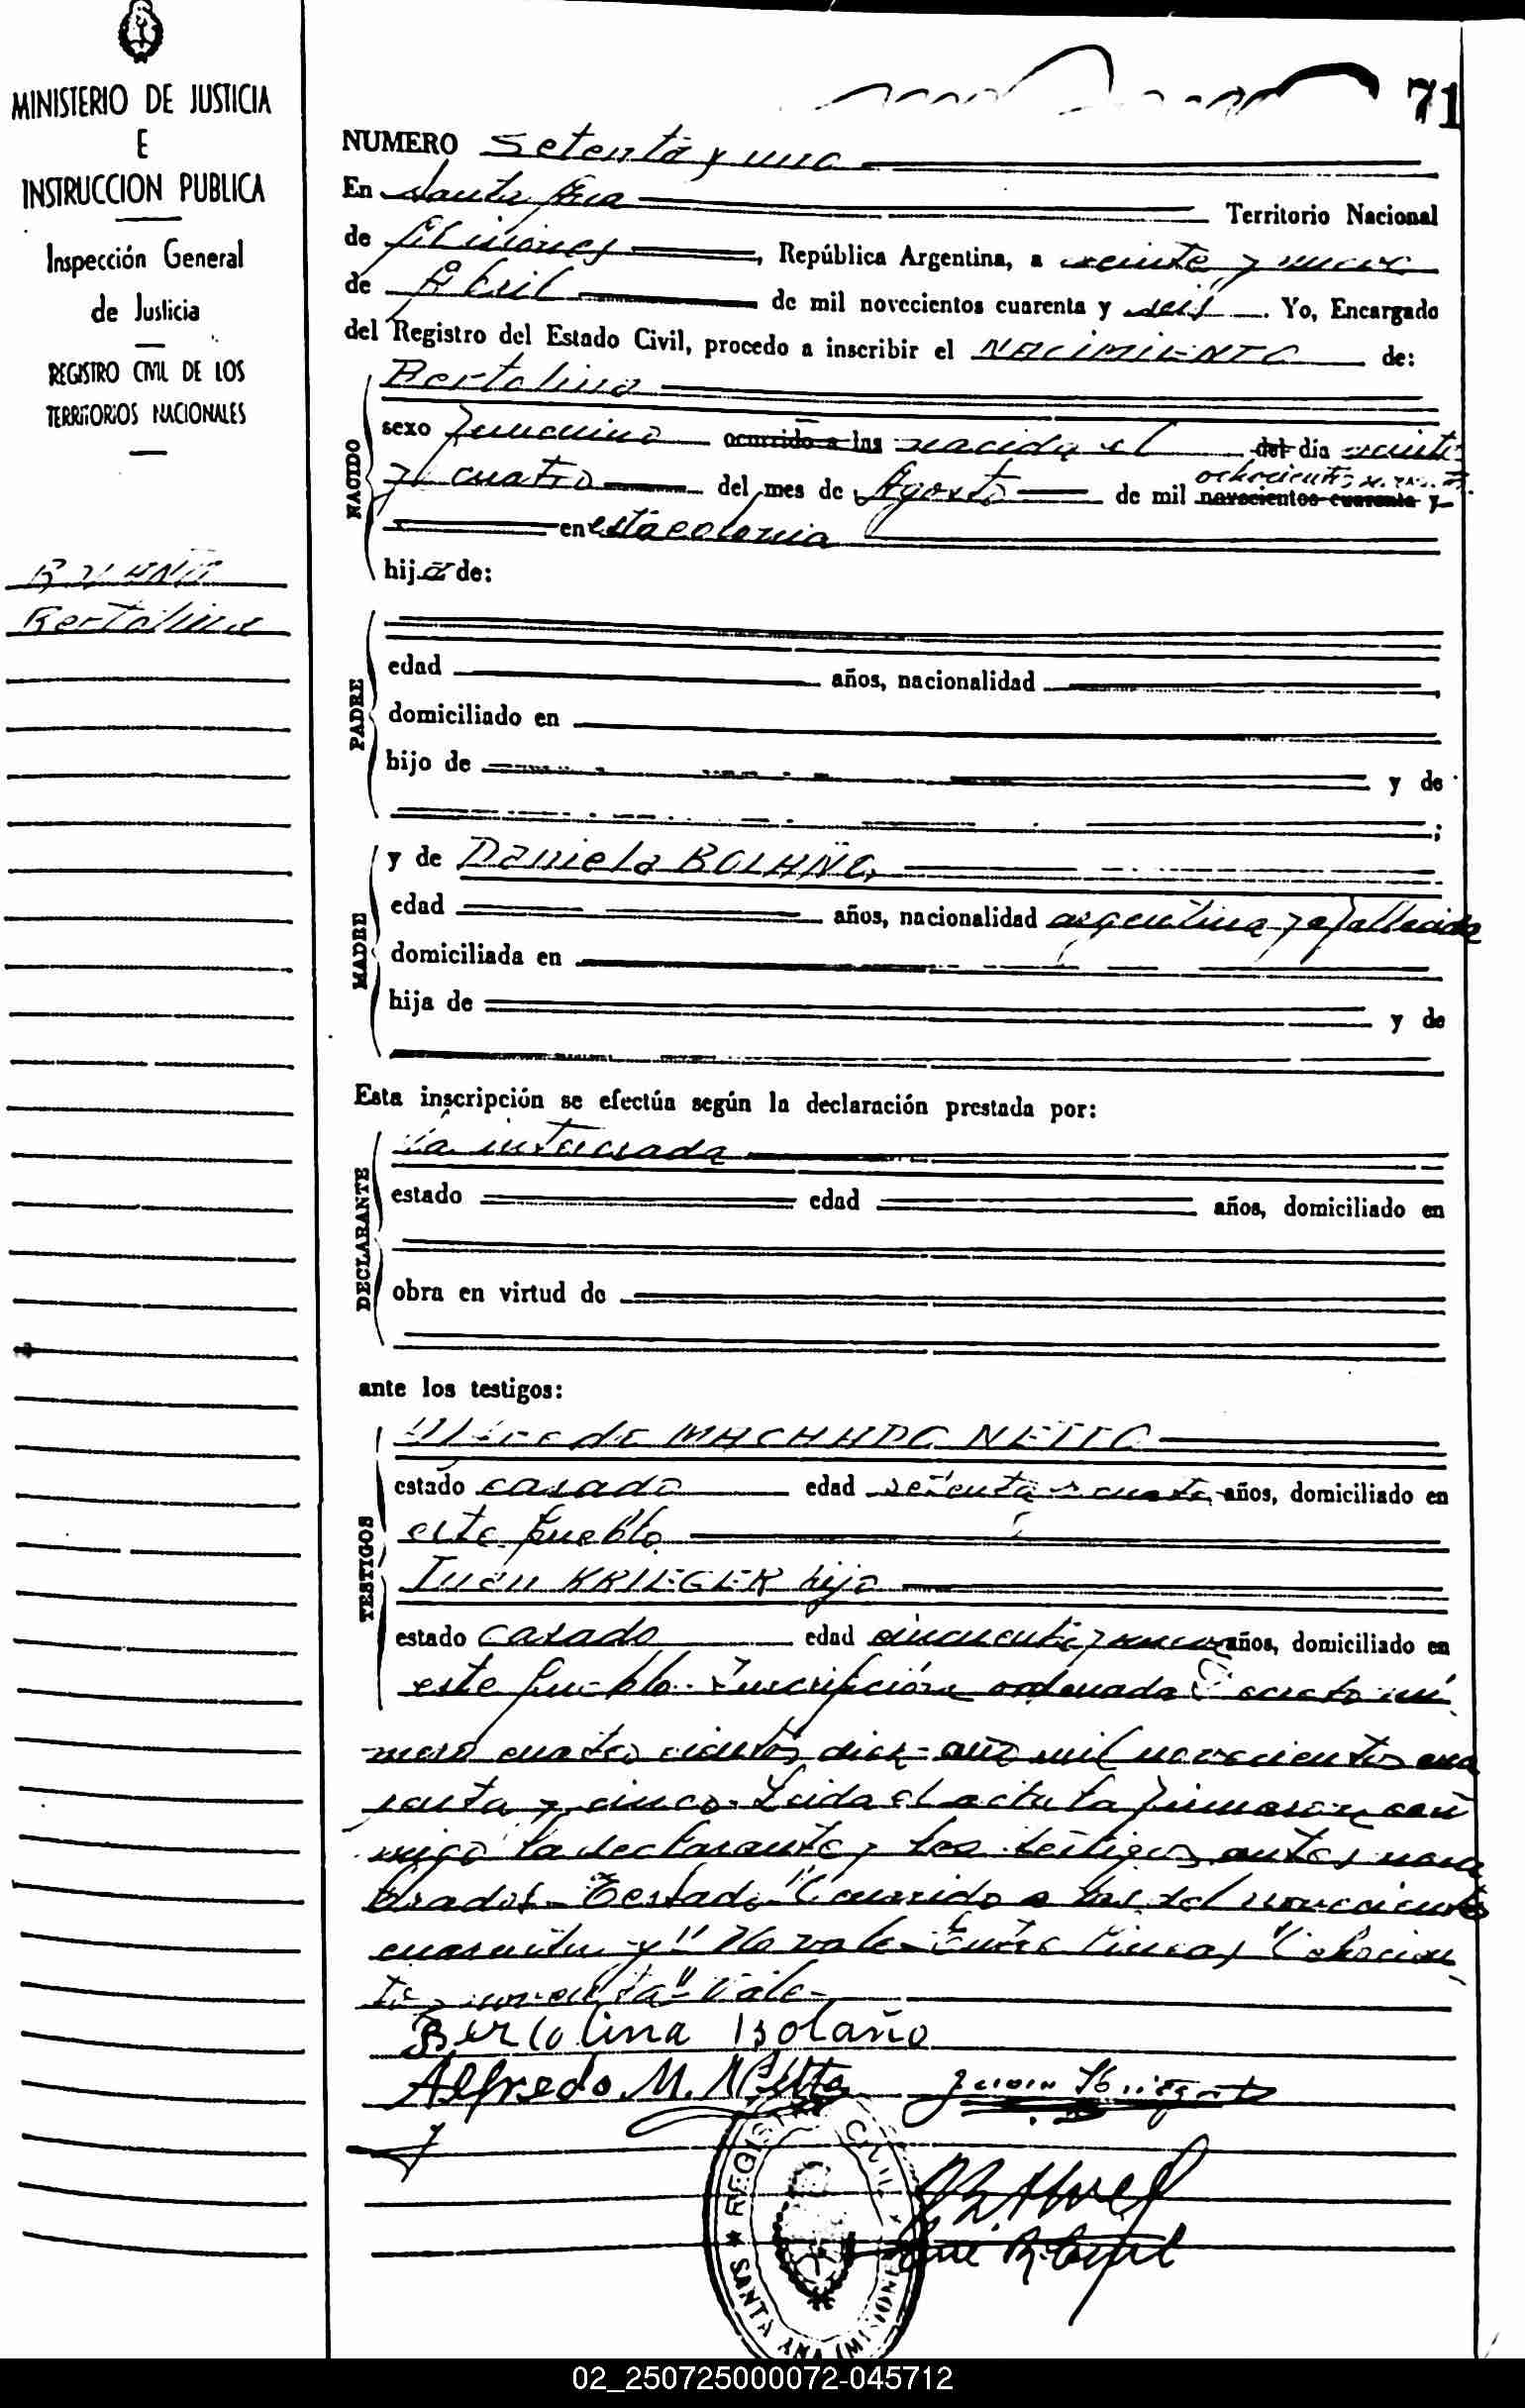 MINISTERIO DE JUSTICIA
E
INSTRUCCION PUBLICA
Inspección General
de Justicia
REGISTRO CIVIL DE LOS
TERRITORIOS NACIONALES
Bertolina
71
NUMERO Setenta y uno
En Santa Ana Territorio Nacional
de Misiones, República Argentina, a veinte y nueve
de Abril de mil novecientos cuarenta y seis. Yo, Encargado
del Registro del Estado Civil, procedo a inscribir el NACIMIENTO de:
NACIDO
Bertolina
sexo femenino ocurrido a las nacida el del dia veinte
y cuatro del mes de Agosto de mil novecientos cuarenta y
ochocientos noventa
en esta colonia
hija de:
PADRE
edad años, nacionalidad
domiciliado en
hijo de y de
;
MADRE
y de Daniela BOLAÑO,
edad años, nacionalidad argentina ya fallecida
domiciliada en
hija de y de
Esta inscripción se efectúa según la declaración prestada por:
DECLARANTE
La interesada
estado edad años, domiciliado en
obra en virtud de
ante los testigos:
TESTIGOS
Alfredo MACHADO NETTO
estado casado edad setenta y cuatro años, domiciliado en
este pueblo
Juan KRIEGER hijo
estado casado edad cincuenta y años, domiciliado en
este pueblo. Inscripción ordenada Decreto nú
mero cuatro cientos diez año mil novecientos cua
renta y cinco. Leida el acta la firmaron con
migo la declarante y los testigos antes nom
brados. Testado "Ocurrido a las del novecientos
cuarenta y" No vale. Entre lineas "Ochocien
tos noventa" Vale.
Bertolina Bolaño
Alfredo M. Netto Juan Krieger
REGISTRO CIVIL
SANTA ANA (MISIONES
02_250725000072-045712